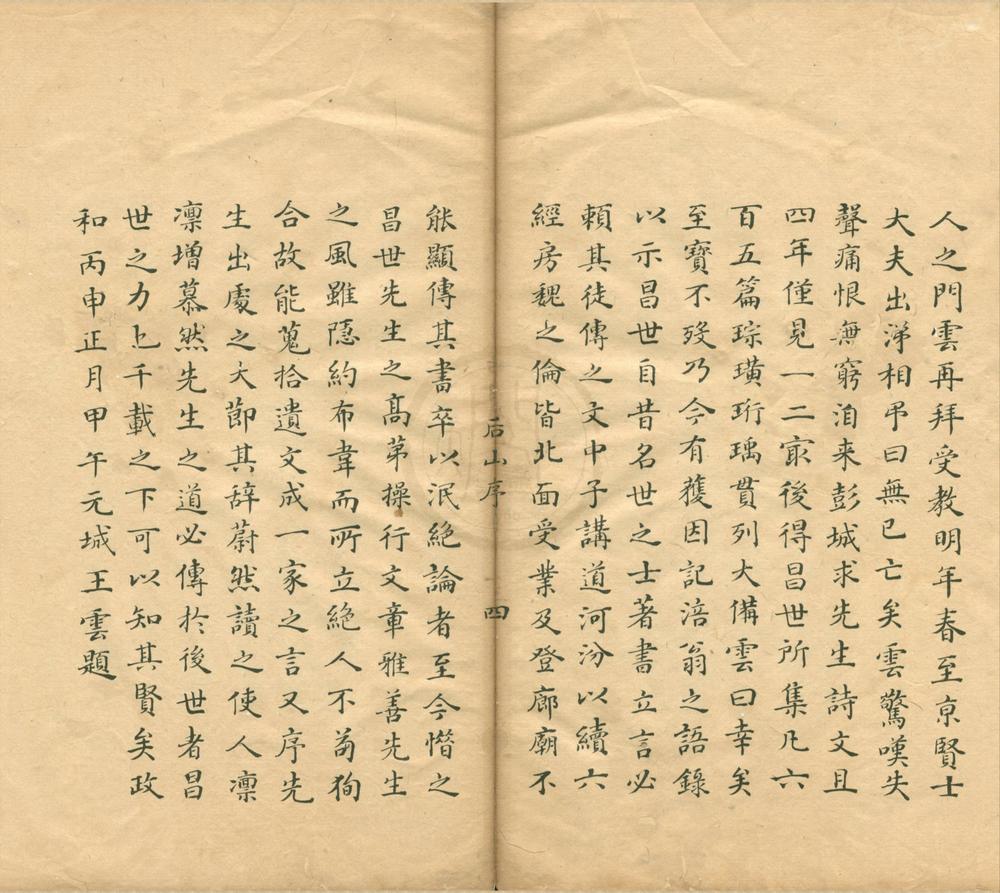 人之門雲再拜受教明年春至京賢士
大夫出涕相弔曰無已亡矣雲驚嘆失
聲痛恨無窮洎来彭城求先生詩文且
四年僅見一二冣後得昌世所集凢六
百五篇琮璜珩瑀貫列大備雲曰幸矣
至寶不殁乃今有獲因記涪翁之語錄
以示昌世自昔名世之士著書立言必
賴其徒傳之文中子講道河汾以續六
經房魏之倫皆北面受業及登廊廟不
后山序 四
能顯傳其書卒以泯絕論者至今憯之
昌世先生之高苐操行文章雅善先生
之風雖隱約布韋而所立絕人不茍狥
合故能蒐拾遺文成一家之言又序先
生出處之大節其辞蔚然讀之使人凛
凛增慕然先生之道必傳於後世者昌
世之力上千載之下可以知其賢矣政
和丙申正月甲午元城王雲題